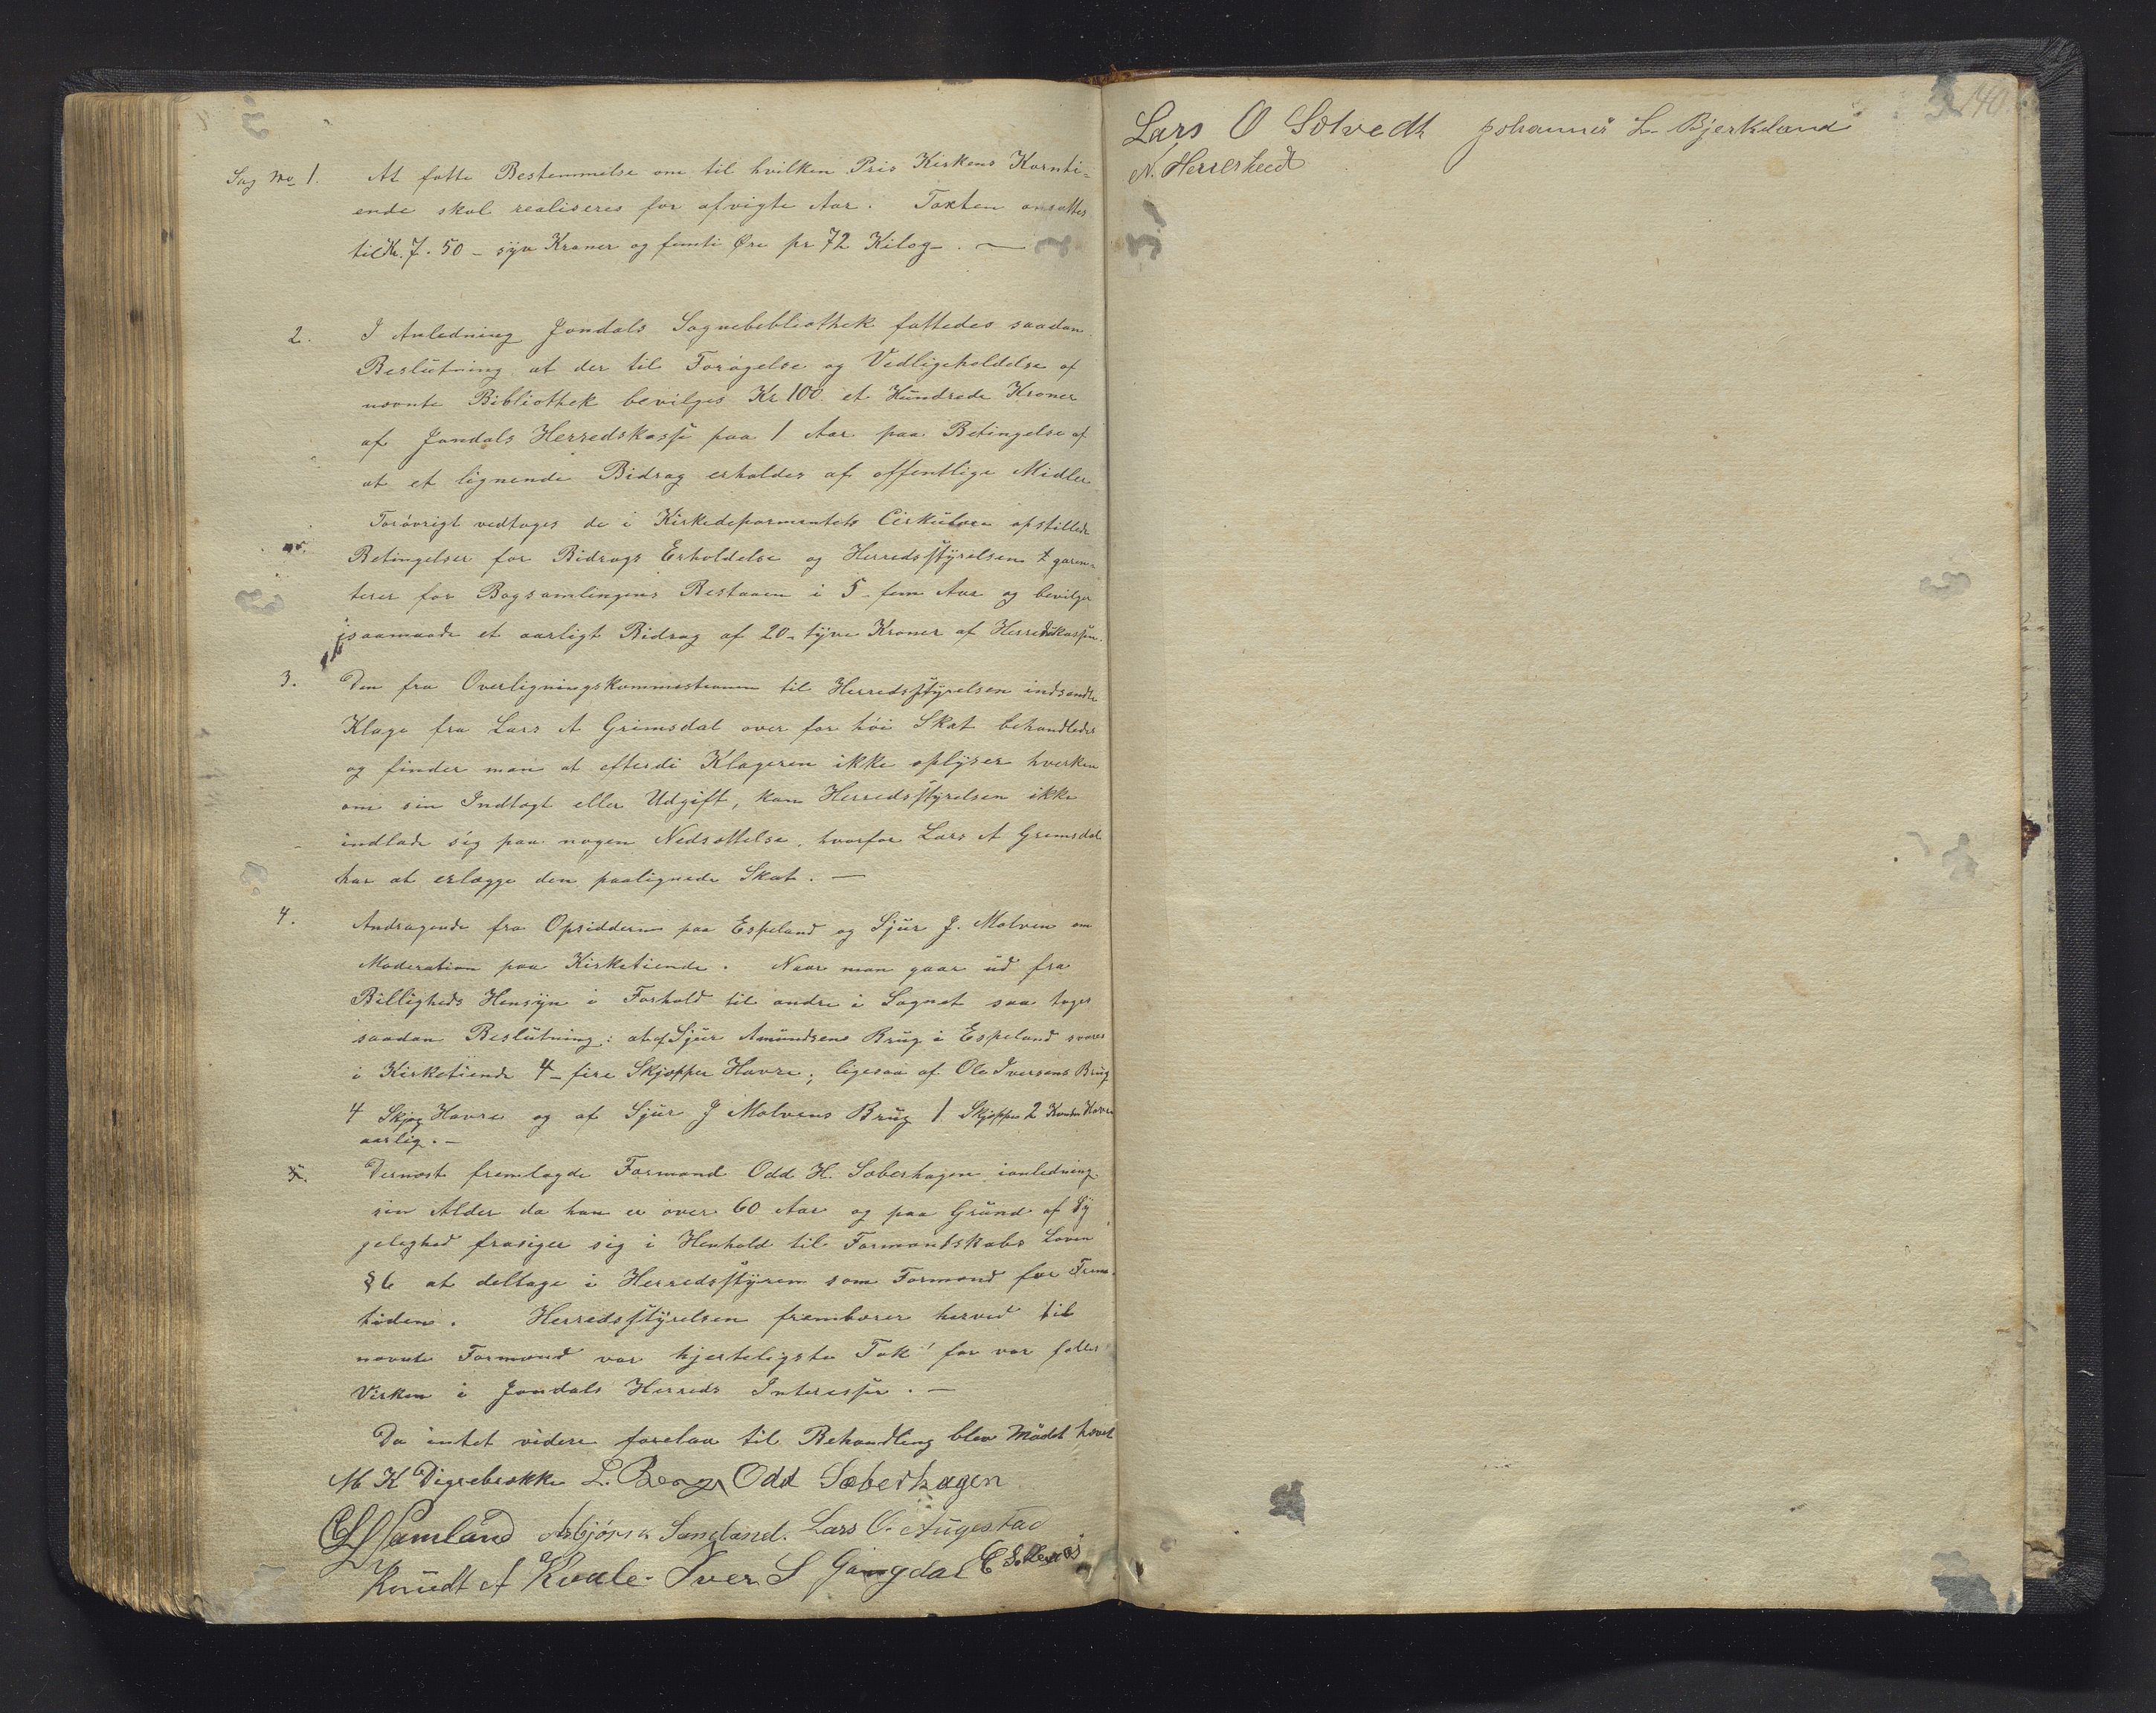 Sag No 1. At fatte Bestemmelse om til hvilken Pris Kirkens Kornti-
ende skal realiseres for afvigte Aar. Taxten ansattes
til Kr. 7.50 - syv Kroner og femti Øre pr 72 Kilog. -
2. I Anledning Jondals Sognebibliothek fattedes saadan
Beslutning at der til Forøgelse og Vedligeholdelse af
nævnte Bibliothek bevilges Kr 100 et Hundrede Kroner
af Jondals Herredskasse paa 1 Aar paa Betingelse af
at et lignende Bidrag erholdes af offentlige Midler
Forøvrigt vedtages de i Kirkedeparmentets Cirkulære opstillede
Betingelser for Bidrags Erholdelse og Herredsstyrelsen garen-
terer for Bogsamlingens Bestaaen i 5 - fem Aar og bevilger
isaamaade et aarligt Bidrag af 20 - tyve Kroner af Herredskassen.
3. Den fra Overligningskommissionen til Herredsstyrelsen indsendte
Klage fra Lars A Grimsdal over for høi Skat behandledes
og finder man at efterdi Klageren ikke oplyser hverken
om sin Indtægt eller Udgift, kan Herredsstyrelsen ikke
indlade sig paa nogen Nedsættelse, hvorfor Lars A Grimsdal
har at erlægge den paalignede Skat. -
4. Andragende fra Opsiddere paa Espeland og Sjur J. Molven om
Moderation paa Kirketiende. Naar man gaar ud fra
Billigheds Hensyn i Forhold til andre i Sognet saa tages
saadan Beslutning: at af Sjur Amundsens Brug i Espeland svares
i Kirketiende 4 - fire Skjæpper Havre, ligesaa af Ole Iversens Brug
4 Skjæp Havre og af Sjur J Molvens Brug 1 Skjæppe 2 Kander Havre
aarlig. -
5. Dernæst fremlagde Formand Odd H. Sæberhagen ianledning
sin Alder da han er over 60 Aar og paa Grund af Sy
gelighed frasiger sig i Henhold til Formandskabs Loven
§ 6 at deltage i Herredsstyren som Formand for Frem-
tiden. Herredsstyrelsen frembærer herved til
nævnte Formand vor hjerteligste Tak for vor fælles
Virken i Jondals Herreds Interesser. -
Da intet videre forelaa til Behandling blev Mødet hævet
M K Digrebrekke L. Berg Odd Sæberhagen
Samland Asbjørn Samland. Lars O. Augestad
Knudt A Kvale. Iver S Gangdal E
140
Lars O Solvedt Johannes L. Bjerkeland
N. Herresheed